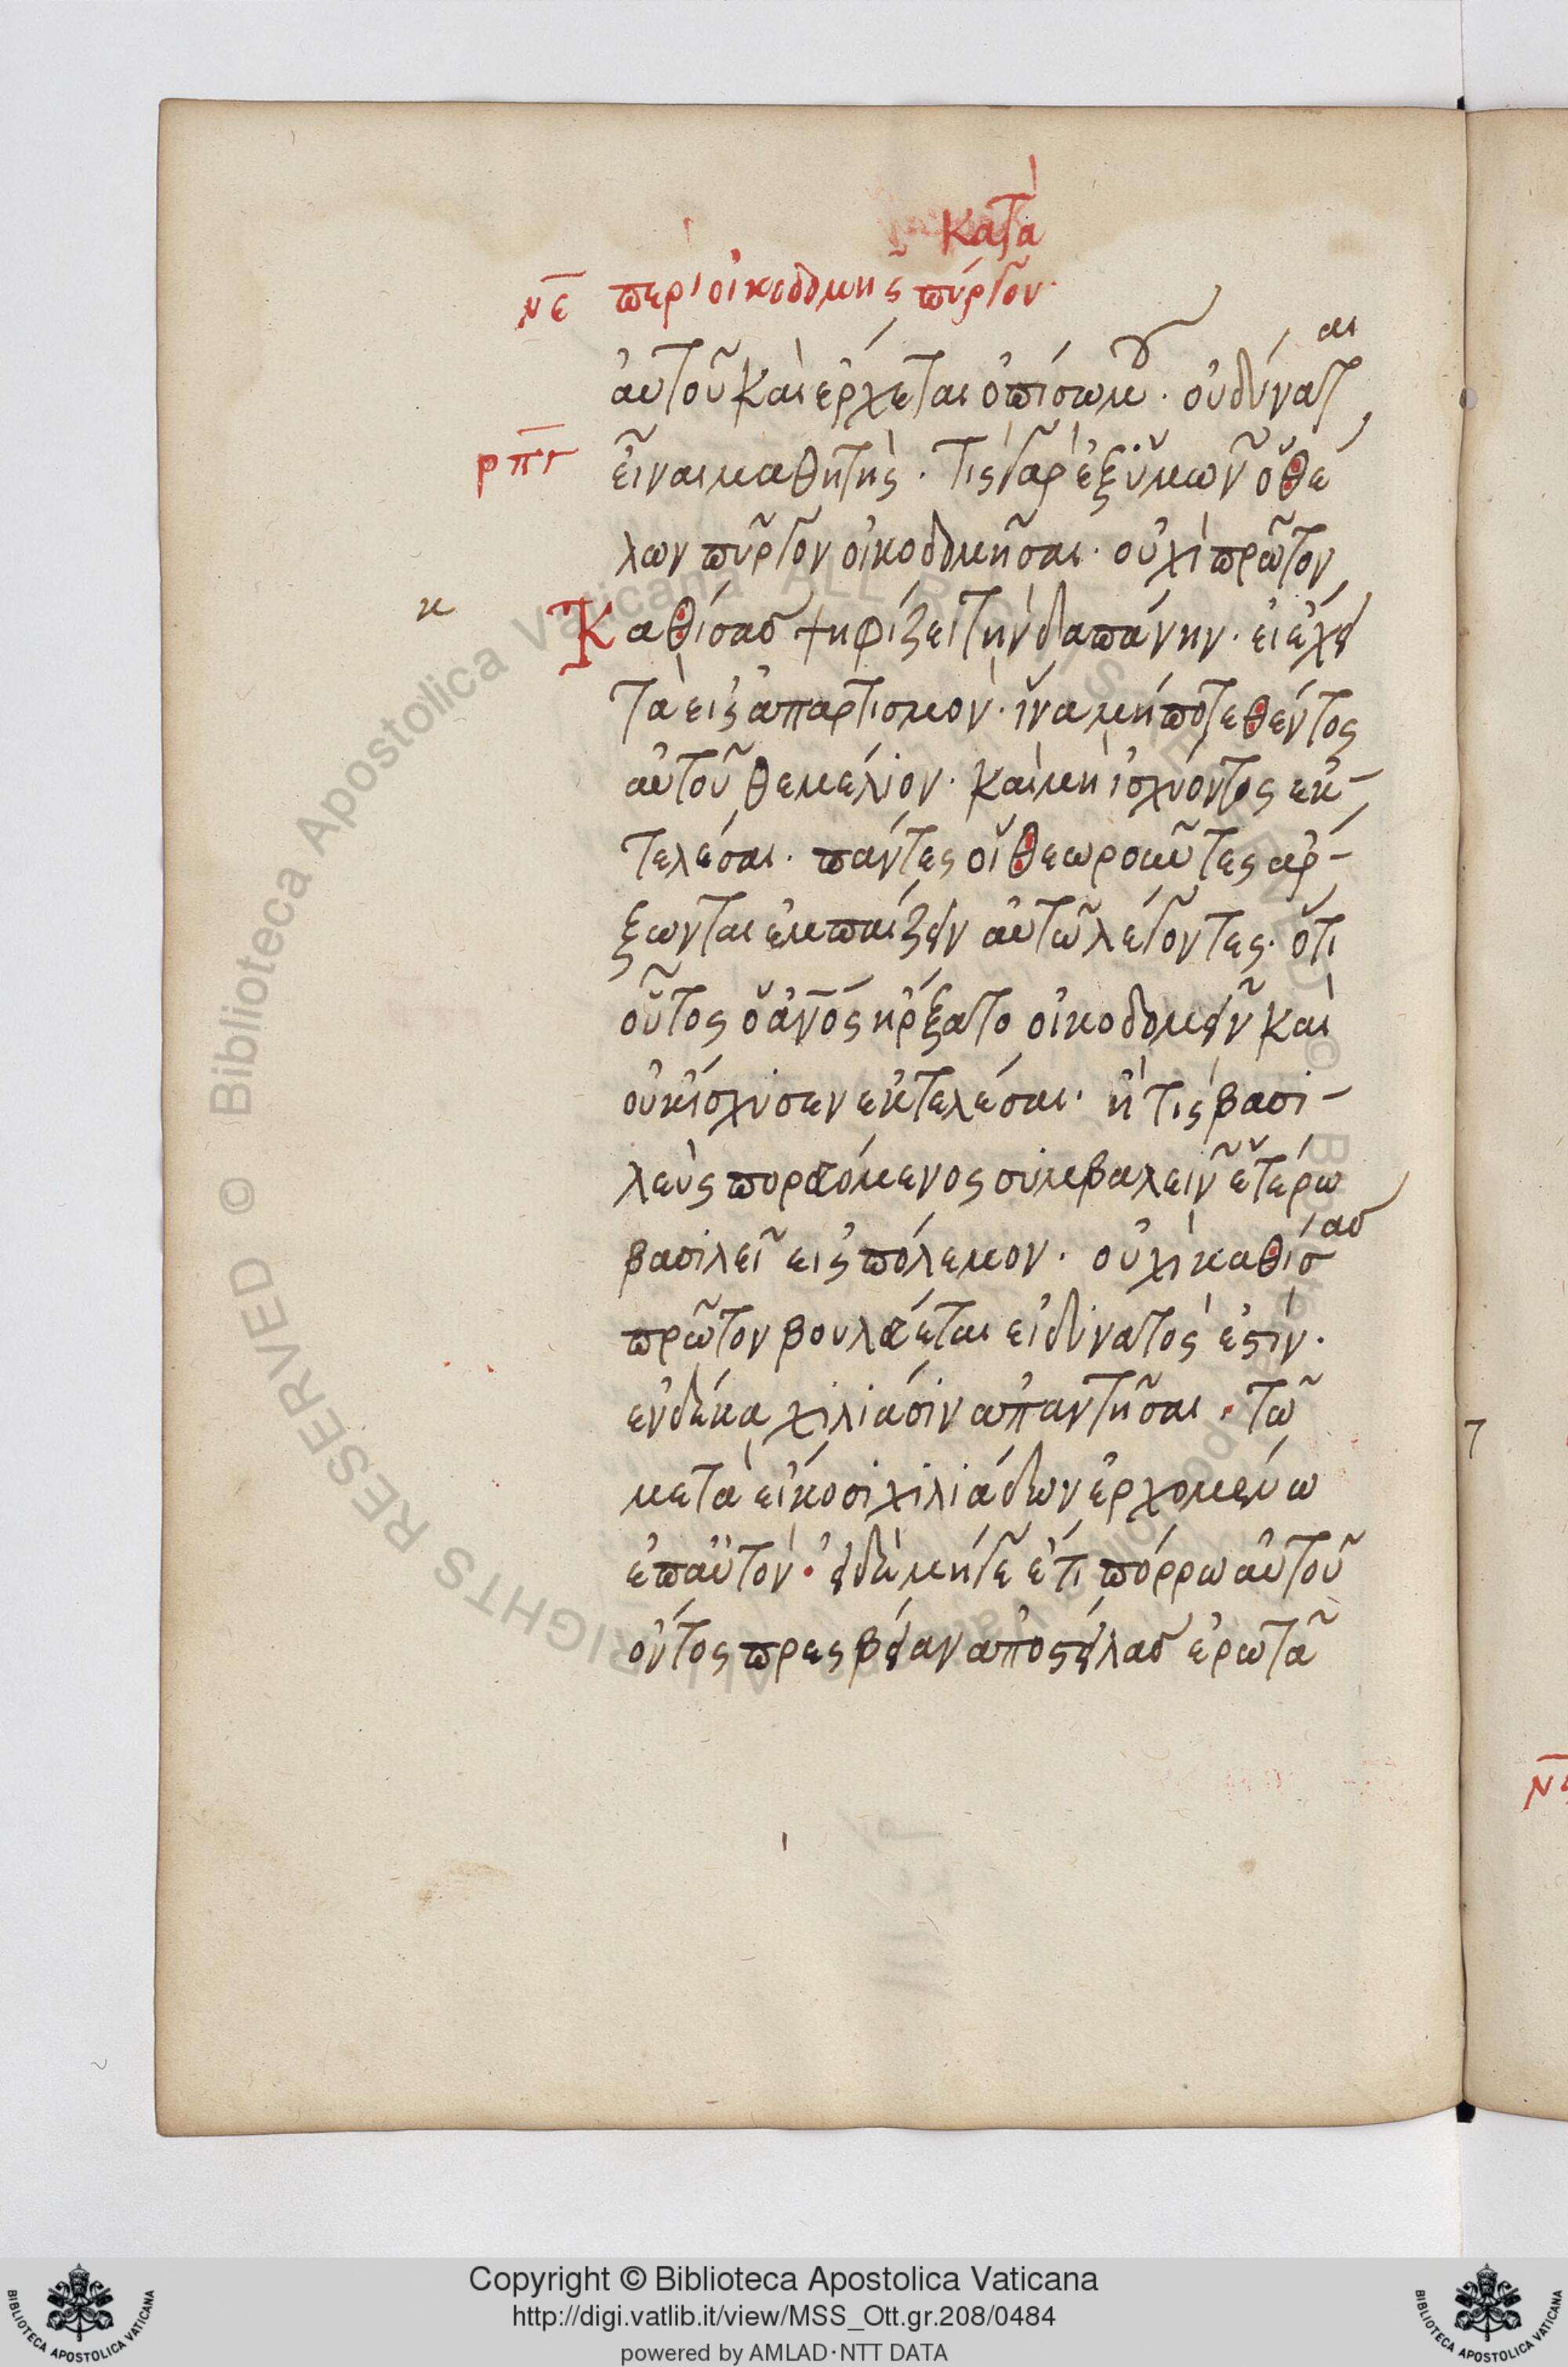 κατὰ
νε περὶ οἰκοδομῆς πύργου·
αὐτοῦ καὶ ἔρχεται ὀπίσω μου· οὐ δύναται
ρπγ εἶναι μαθητής· τίς γὰρ ἐξ ὑμῶν ὁ θέ
λων πῦργον οἰκοδομῆσαι· οὐχὶ πρῶτον
κ Καθίσας ψηφίζει τὴν δαπάνην· εἰ ἔχει
τὰ εἰς ἀπαρτισμόν· ἵνα μήποτε θέντος
αὐτοῦ θεμέλιον· καὶ μὴ ἰσχύοντος ἐκ-
τελέσαι· πάντες οἱ θεωροῦντες ἄρ-
ξωνται ἐμπαίζειν αὐτῶ λέγοντες· ὅτι
οὗτος ὁ ἄνος ἤρξατο οἰκοδομεῖν καὶ
οὐκ ἴσχυσεν ἐκτελέσαι· ἢ τίς βασι-
λεὺς πορευόμενος συμβαλεῖν ἑτέρω
βασιλεῖ εἰς πόλεμον· οὐχὶ καθίσας
πρῶτον βουλεύεται εἰ δυνατός ἐστιν·
ἐν δέκα χιλιάσιν ἀπαντῆσαι· τῶ
μετὰ εἴκοσι χιλιάδων ἐρχομένω
ἐπ αὐτόν· εἰ δὲ μήγε ἔτι πόρρω αὐτοῦ
ὄντος πρεσβείαν ἀποστείλας ἐρωτᾶ
Copyright © Biblioteca Apostolica Vaticana
http://digi.vatlib.it/view/MSS_Ott.gr.208/0484
powered by AMLAD·NTT DATA
BIBLIOTECA APOSTOLICA VATICANA
BIBLIOTECA APOSTOLICA VATICANA
© Biblioteca Apostolica Vaticana ALL RIGHTS RESERVED